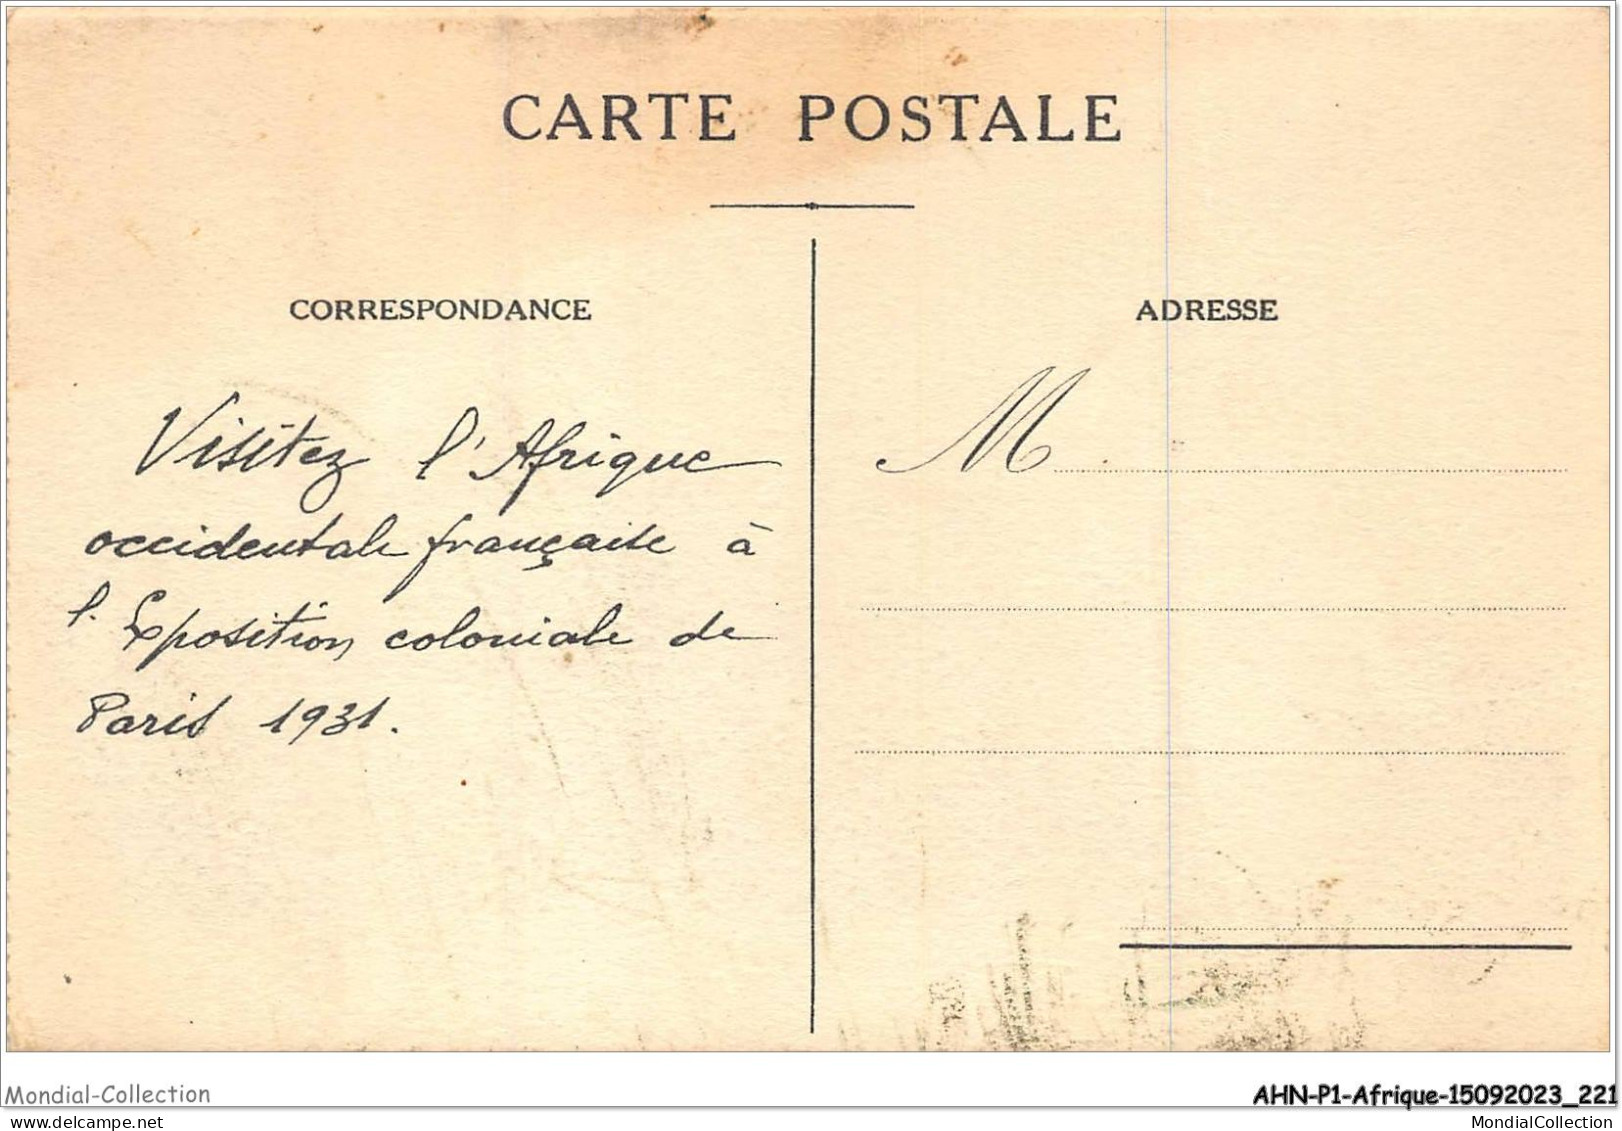 CARTE POSTALE
CORRESPONDANCE
ADRESSE
Visitez l'Afrique
occidentale française à
l'Exposition coloniale de
Paris 1931.
M
Mondial-Collection
AHN-P1-Afrique-15092023_221
delcampe.net
MondialCollection